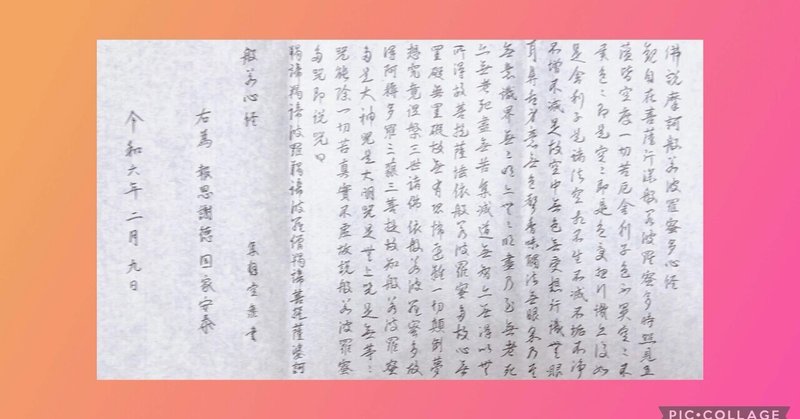 佛説摩訶般若波羅蜜多心経
観自在菩薩行深般若波羅蜜多時照見五
蘊皆空度一切苦厄舎利子色不異空々不
異色々即是空々即是色受想行識亦復如
是舎利子是諸法空相不生不滅不垢不浄
不増不減是故空中無色無受想行識無眼
耳鼻舌身意無色聲香味觸法無眼界乃至
無意識界無々明亦無々明盡乃至無老死
亦無老死盡無苦集滅道無智亦無得以無
所得故菩提薩埵依般若波羅蜜多故心無
罣礙無罣礙故無有恐怖遠離一切顛倒夢
想究竟涅槃三世諸佛依般若波羅蜜多故
得阿耨多羅三藐三菩提故知般若波羅蜜
多是大神咒是大明咒是無上咒是無等々
咒能除一切苦真實不虚故説般若波羅蜜
多咒即説咒曰
羯諦羯諦波羅羯諦波羅僧羯諦菩提薩婆訶
般若心経 集自空海書
右為 報恩謝徳 国家安泰
令和六年二月九日
PIC•COLLAGE